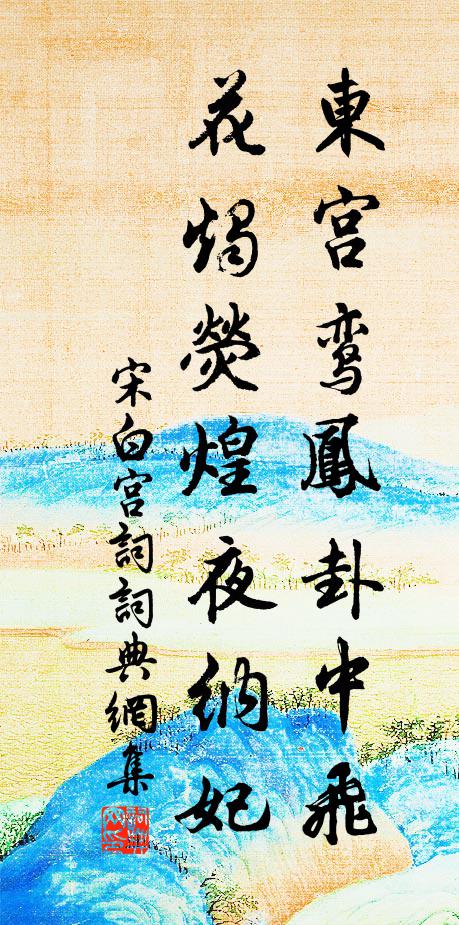 東宫鸾鳳卦中飛
花燭熒煌夜納妃
宋白宫詞詞典網集